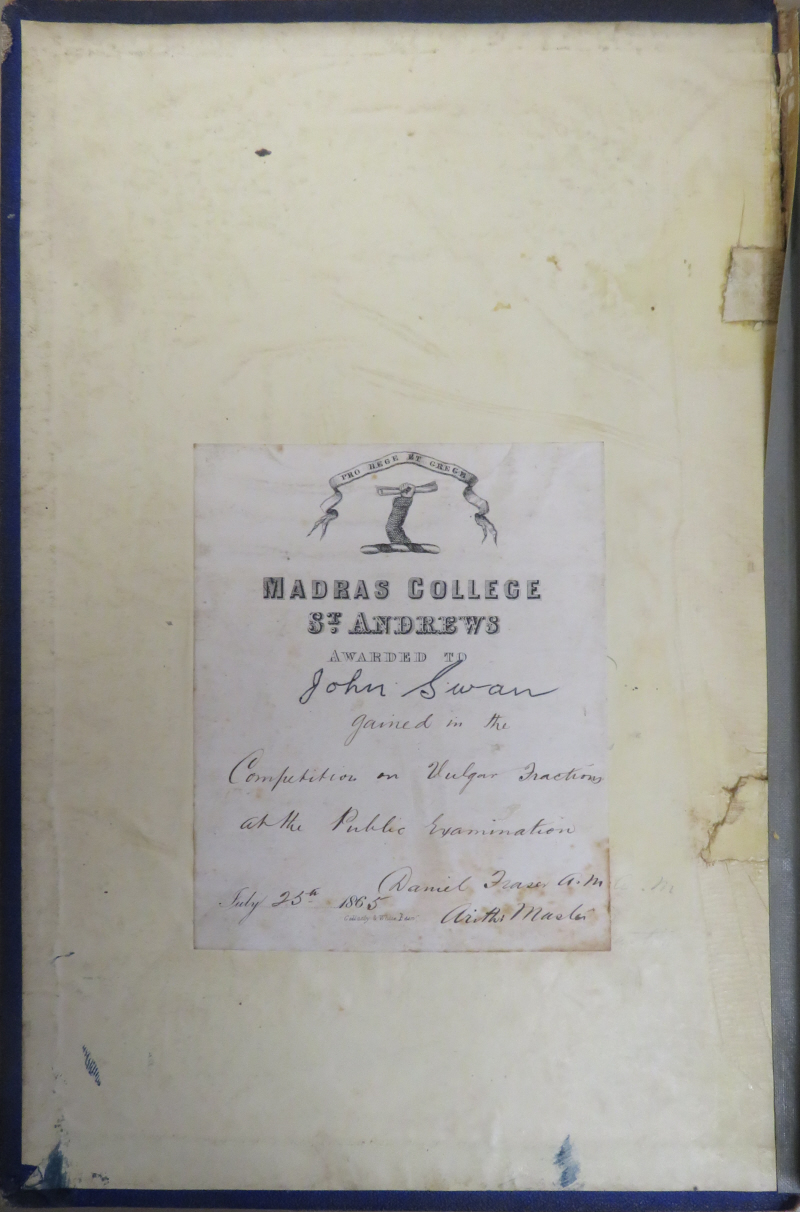 PRO REGE ET GREGE
MADRAS COLLEGE
ST. ANDREWS
AWARDED TO
John Swan
gained in the
Competition on Vulgar Fractions
at the Public Examination
Daniel Fraser A.M
July 25th 1865
Arith: Master